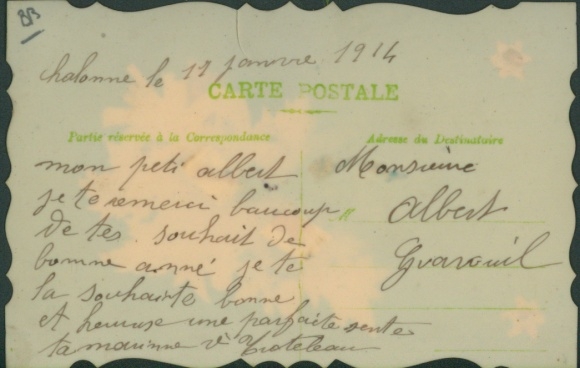 BB
chalonne le 11 janvire 1914
CARTE POSTALE
Partie réservée à la Correspondance
Adresse du Destinataire
mon peti albert
je te remerci baucoup
de tes souhait de
bonne anné je te
la souhaite bonne
et heureuse une parfaite sente
ta marinne Ve
Monsieur
Albert